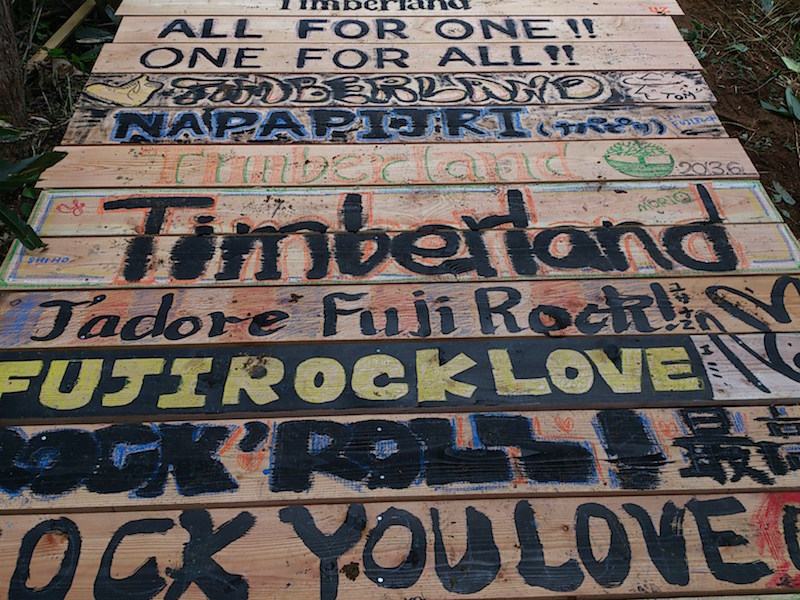 Timberland
ALL FOR ONE!!
ONE FOR ALL!!
TIMBERLAND TOM
NAPAPIJRI (ナパピリ)
Timberland 2013.6.
Timberland
J'adore Fuji Rock!
FUJI ROCK LOVE
ROCK'ROLL! 最高
OCK YOU LOVE